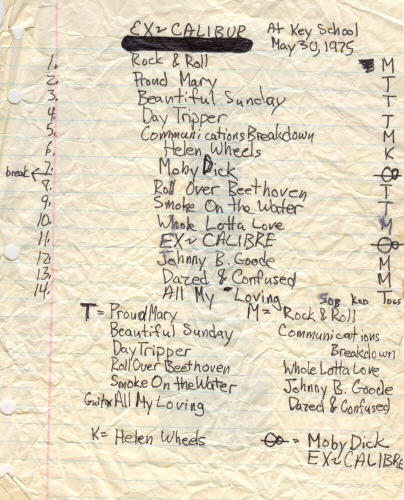 EX~CALIBUR At Key School
May 30, 1975
1. Rock & Roll M
2. Proud Mary T
3. Beautiful Sunday T
4. Day Tripper T
5. Communications Breakdown M
6. Helen Wheels K
break ← 7. Moby Dick
8. Roll Over Beethoven T
9. Smoke On the Water T
10. Whole Lotta Love M
11. EX~CALIBRE
12. Johnny B. Goode M
13. Dazed & Confused M
14. All My Loving
T = Proud Mary M = Rock & Roll
Beautiful Sunday Communications
Day Tripper Breakdown
Roll Over Beethoven Whole Lotta Love
Smoke On the Water Johnny B. Goode
Guitar All My Loving Dazed & Confused
K = Helen Wheels = Moby Dick
EX~CALIBRE